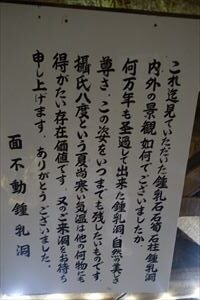 これ迄見ていたゞいた鍾乳石石筍石柱鍾乳洞
内外の景観如何でございましたか
何万年も歪過して出来た鍾乳洞自然の美しさ
尊さ、この姿をいつまでも残したいものです
攝氏八度という夏尚寒い気温は他の何物にも
得がたい存在価値です。又のご来洞をお待ち
申し上げます。ありがとうございました。
面不動鍾乳洞